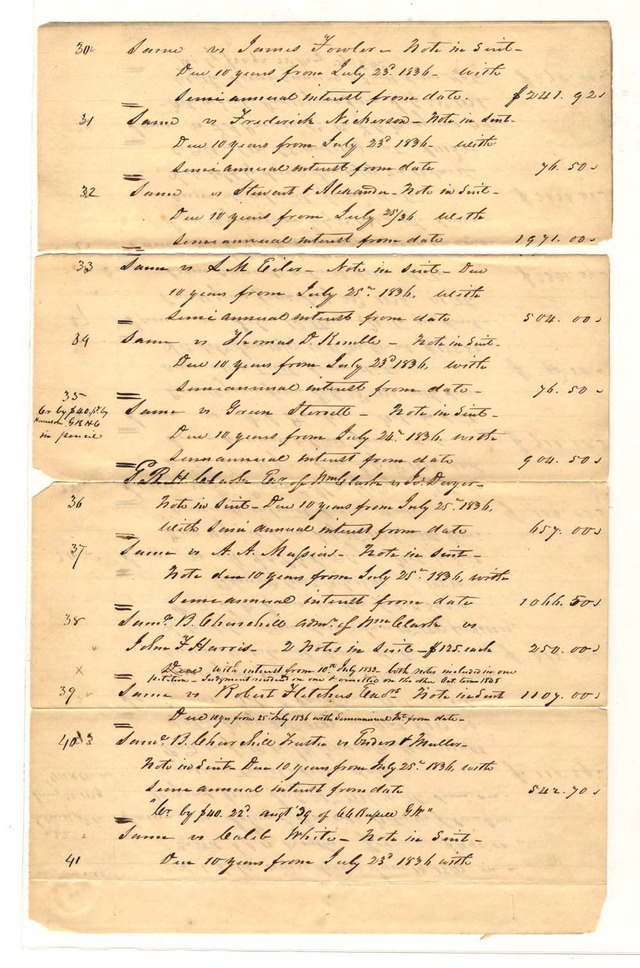 30 Same vs James Fowler – Note in Suit –
Due 10 years from July 23d 1836 – with
Semi annual interest from date. $241.92
31 Same vs Frederick Nickerson – Note in Suit –
Due 10 years from July 23d 1836 – with
Semi annual interest from date 76.50
32 Same vs Stewart & Alexander – Note in Suit –
Due 10 years from July 25/36 with
Semi annual interest from date 1971.00
33 Same vs L M Eiler – Note in Suit – Due
10 years from July 25th 1836, with
Semi annual interest from date 504.00
34 Same vs Thomas D. Kemble – Note in Suit –
Due 10 years from July 23d 1836, with
Semi annual interest from date – 76.50
35 Same vs Green – Note in Suit –
Cr by $40, pt by
G R H C
in pencil
Due 10 years from July 24th 1836, with
Semi annual interest from date – 904.50
G. R. H Clarke Exr of Wm Clark vs Jo. Dwyer –
36 Note in Suit – Due 10 years from July 25th 1836,
With Semi annual interest from date 657.00
37 Same vs A. A. Massias – Note in Suit –
Note due 10 years from July 25th 1836, with
Semi annual interest from date 1066.50
38 Saml. B. Churchill admr. of Wm Clark vs
John F Harris – 2 Notes in Suit – $125. each 250.00
x Due with interest from 10th July 1833 – both notes included in one
petition – Judgment rendered on one & on the other Oct. term 1845
39 Same vs Robert Fletchers Exors. Note in Suit 1107.00
Due 10 yrs from 25 July 1836 with Semi annual Int. from date –
40 Saml. B. Churchill Trustee vs Enders & Muller –
Note in Suit – Due 10 years from July 25th 1836, with
Semi annual interest from date 542.70
"Cr. by $40. 22d. augt '39 of CC Russell G K"
Same vs Caleb White – Note in Suit –
41 Due 10 years from July 23d 1836 with